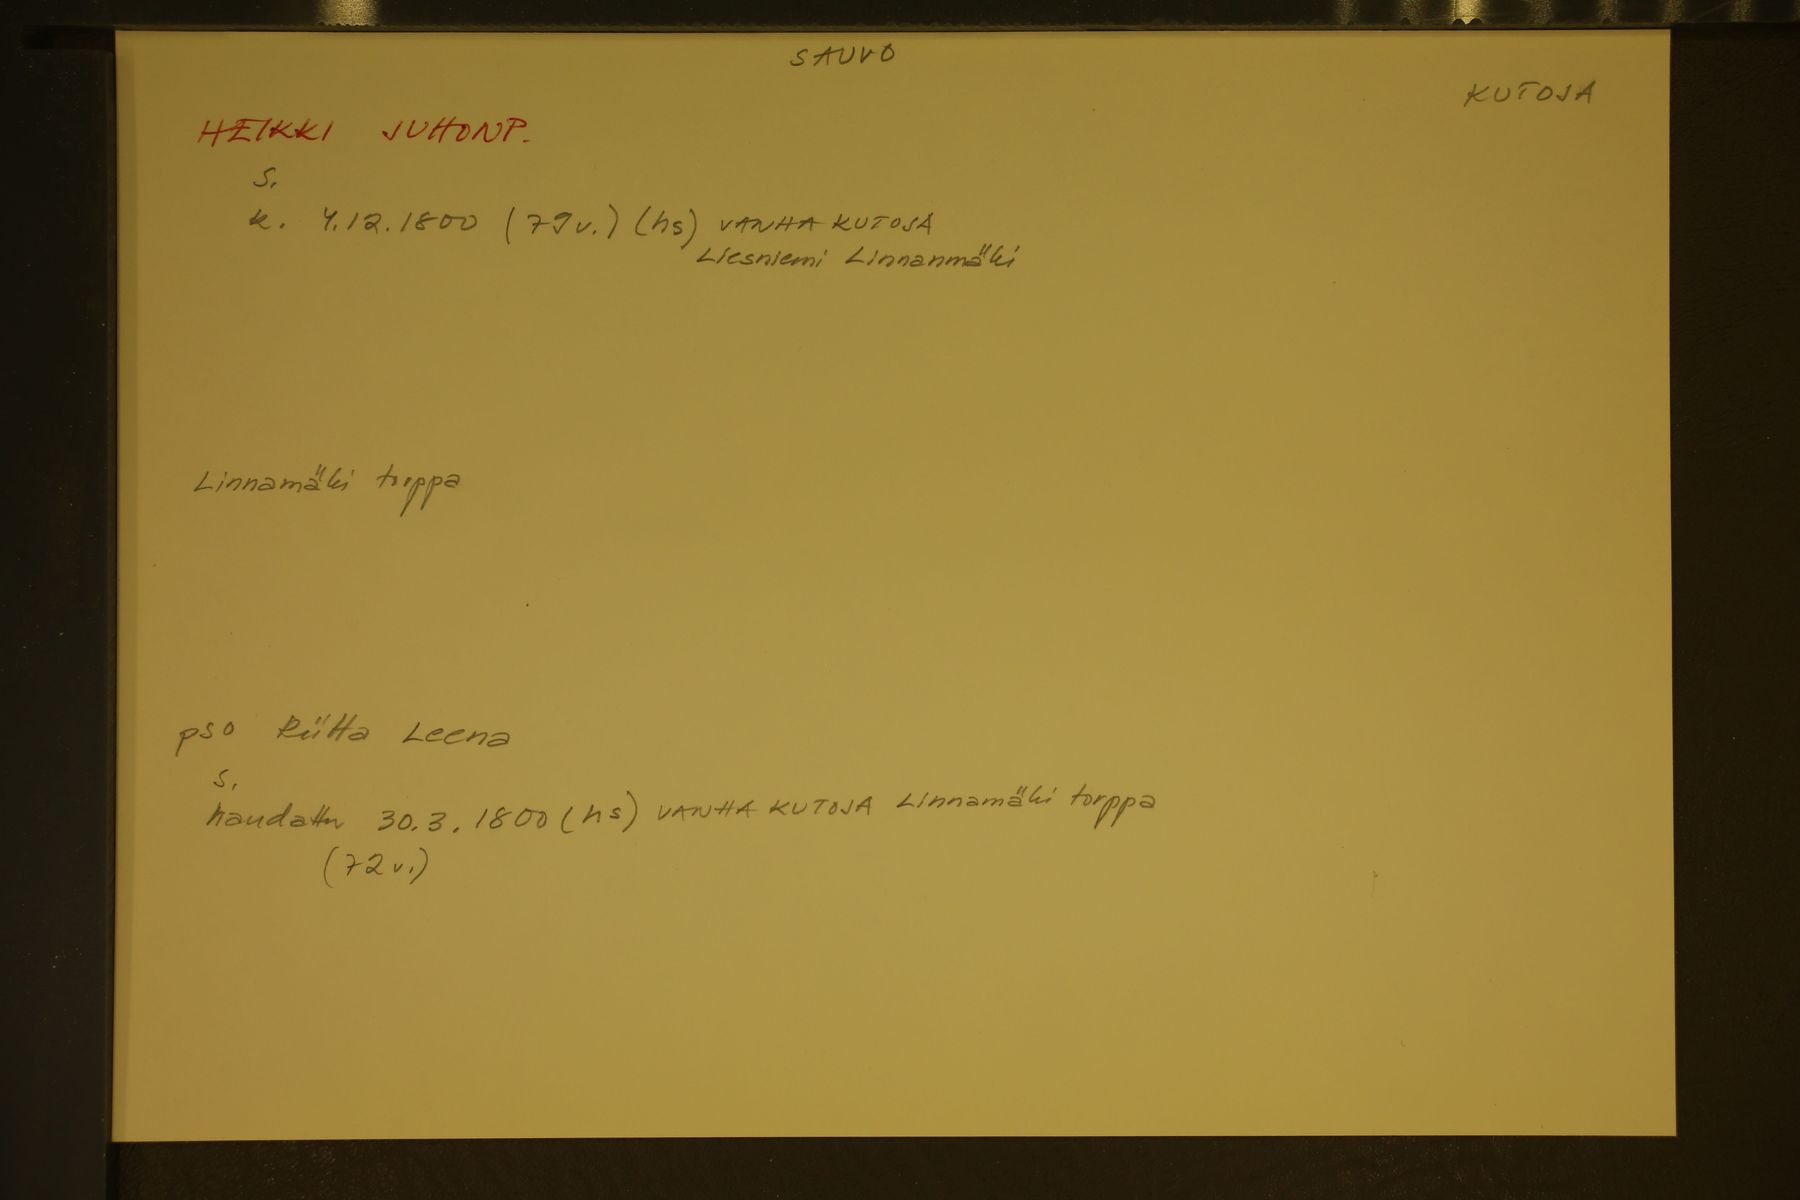 SAUVO
KUTOJA
HEIKKI JUHONP.
s.
k. 4.12.1800 (79v.) (hs) VANHA KUTOJA
Liesniemi Linnanmäki
Linnamäki torppa
pso Riitta Leena
s.
haudattu 30.3.1800 (hs) VANHA KUTOJA Linnamäki torppa
(72v.)